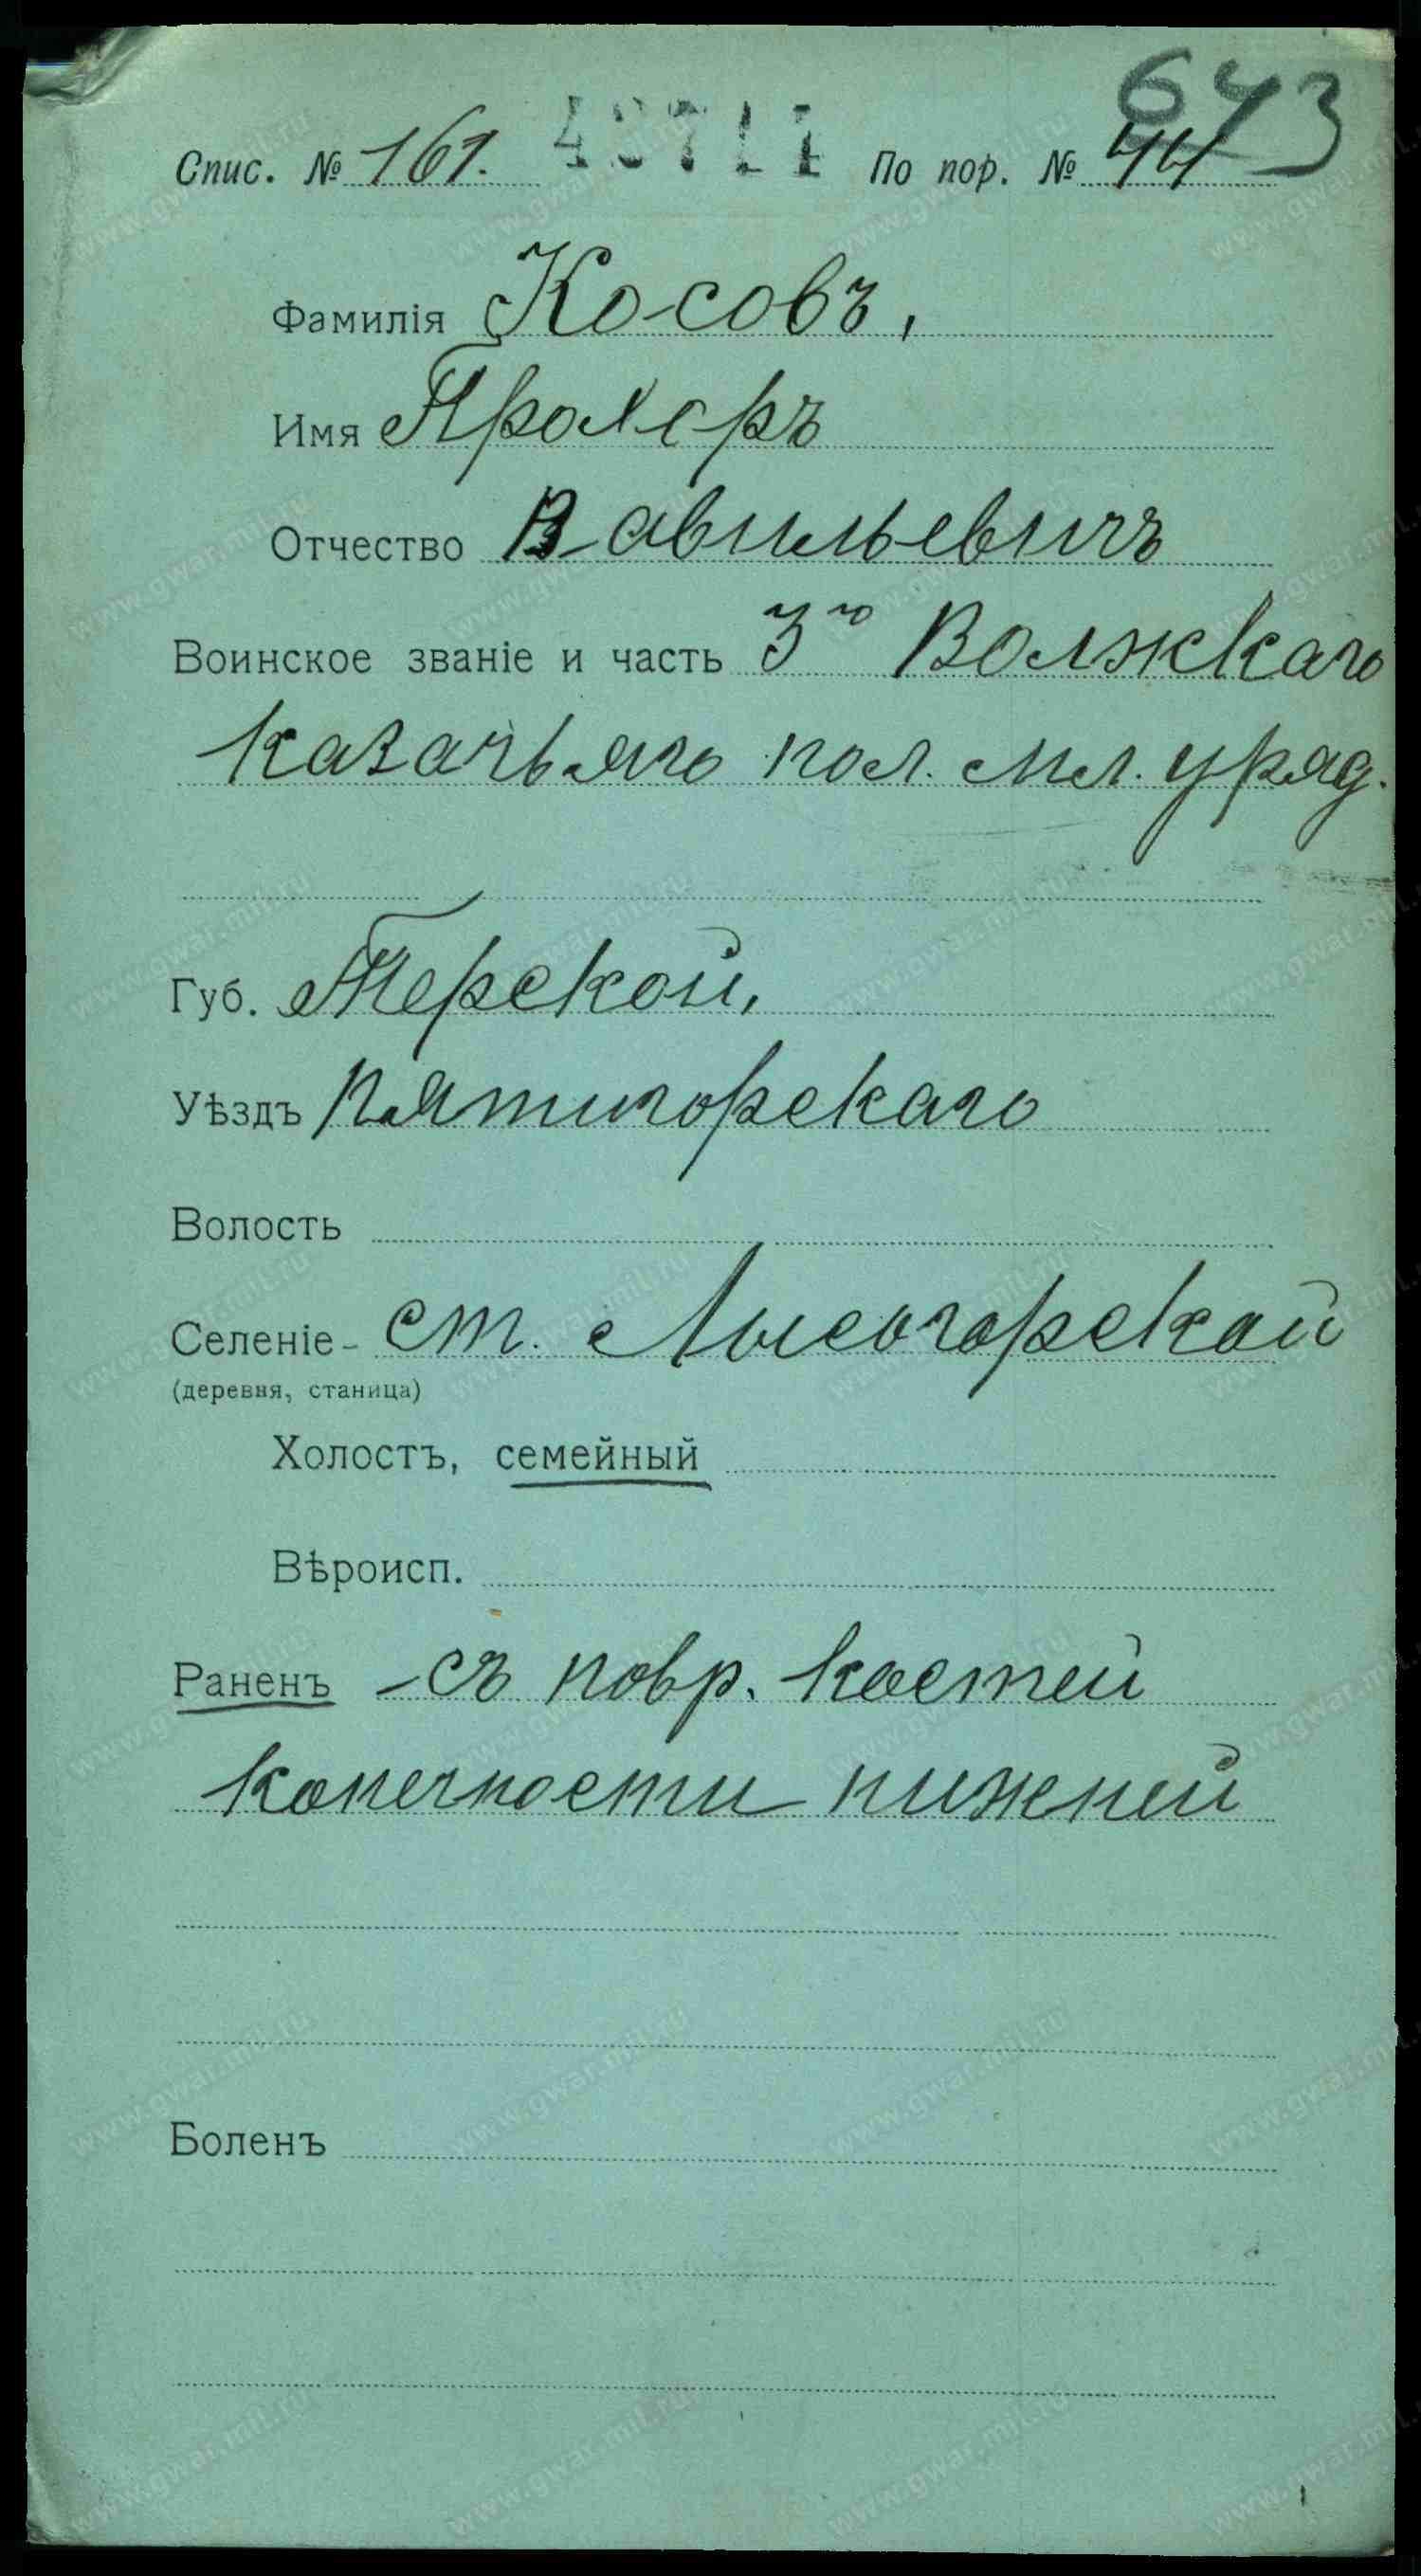 643
Спис. № 161. По пор. № 44
Фамилія Косовъ,
Имя Прохоръ
Отчество Вавильевичъ
Воинское званіе и часть 3го Волжскаго
казачьяго пол. мл. уряд.
Губ. Терской,
Уѣздъ Пятигорскаго
Волость
Селеніе - ст. Лысогорской
(деревня, станица)
Холостъ, семейный
Вѣроисп.
Раненъ - съ повр. костей
конечности нижней
Боленъ